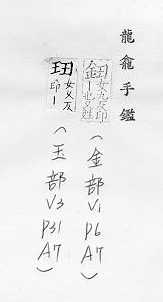 龍龕手鑑
鈕女九反印
丨也又姓
(金部V1
P6
A7)
㺲女又反
印丨
(玉部V3
P31
A7)